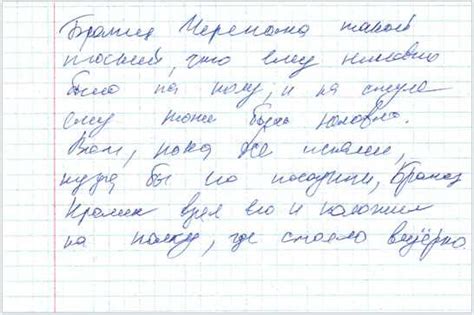 Братец Черепаха такой
плоский, что ему неловко
было на полу, и на стуле
ему тоже было неловко.
Вот, пока все искали,
куда бы его посадить, Братец
Кролик взял его и положил
на полку, где стояло ведёрко.